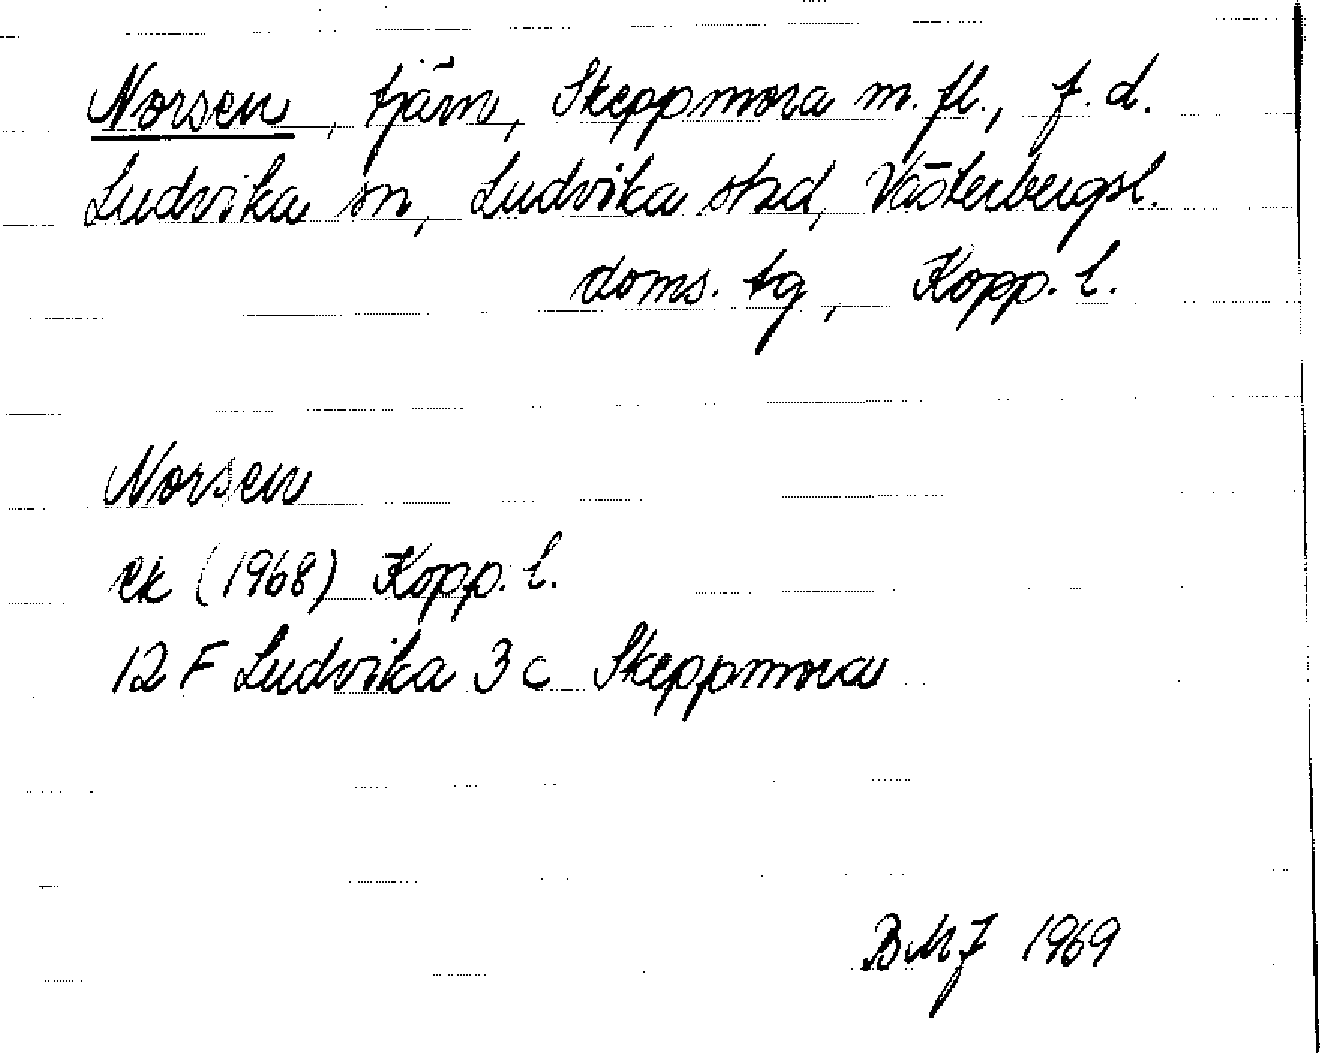 Norsen, tjärn, Skeppmora m. fl., f. d.
Ludvika sn, Ludvika stad, Västerbergsl.
doms. tg, Kopp. l.
Norsen
ek (1968) Kopp. l.
12 F Ludvika 3 c Skeppmora
BMJ 1969